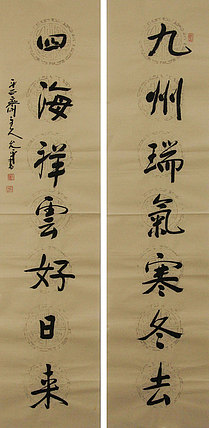 九州瑞氣寒冬去
四海祥雲好日来